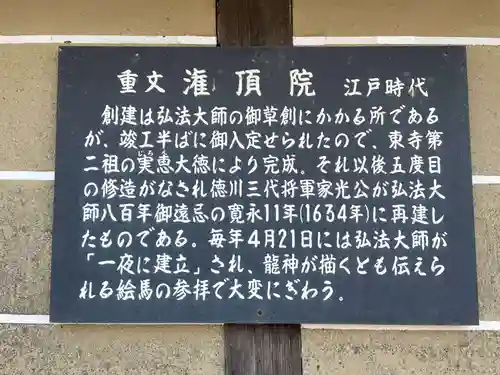 重文 灌頂院 江戸時代
創建は弘法大師の御草創にかかる所である
が、竣工半ばに御入定せられたので、東寺第
二祖の実恵大徳により完成。それ以後五度目
の修造がなされ徳川三代将軍家光公が弘法大
師八百年御遠忌の寛永11年(1634年)に再建し
たものである。毎年4月21日には弘法大師が
「一夜に建立」され、龍神が描くとも伝えら
れる絵馬の参拝で大変にぎわう。